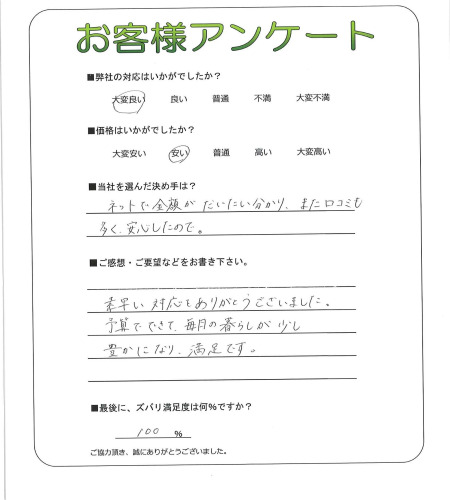 お客様アンケート
■弊社の対応はいかがでしたか？
大変良い 良い 普通 不満 大変不満
■価格はいかがでしたか？
大変安い 安い 普通 高い 大変高い
■当社を選んだ決め手は？
ネットで全額がだいたい分かり、また口コミも
多く、安心したので。
■ご感想・ご要望などをお書き下さい。
素早い対応をありがとうございました。
予算でできて、毎月の暮らしが少し
豊かになり、満足です。
■最後に、ズバリ満足度は何%ですか？
100 %
ご協力頂き、誠にありがとうございました。